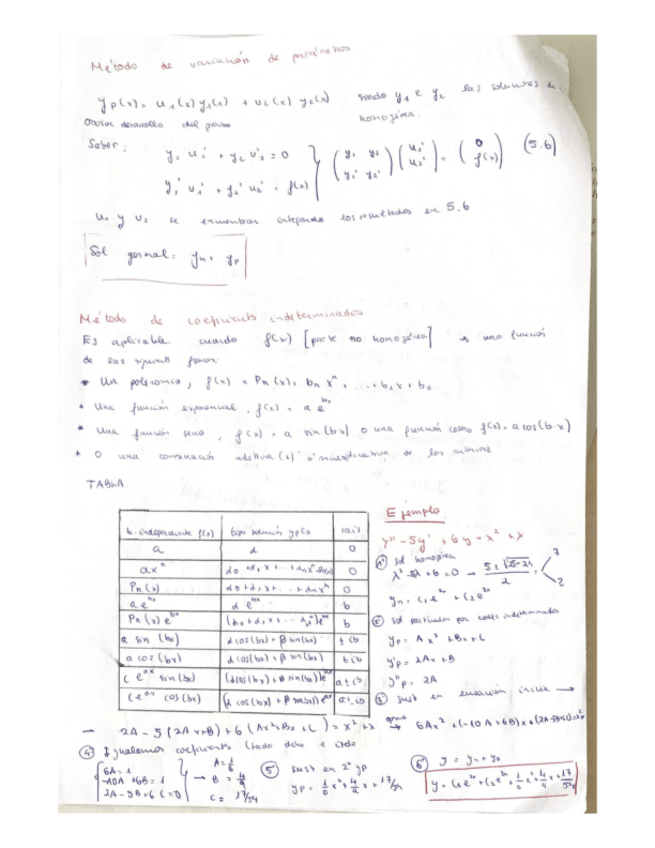 Método de variación de parámetros
yp(x) = u1(x) y1(x) + u2(x) y2(x) siendo y1 e y2 las soluciones de
homogénea.
desarrollo del
Saber: y1 u1' + y2 u2' = 0
y1' u1' + y2' u2' = f(x)
(y1 y2 / y1' y2') (u1' / u2') = (0 / f(x)) (5.6)
u1 y u2 se encuentran integrando los resultados en 5.6
Sol general: yh + yp
Método de coeficients indeterminados
Es aplicable cuando f(x) [parte no homogénea] es una función
de las formas:
* Un polinomio, f(x) = Pn(x) = bn x^n + ... + b1 x + b0
* Una función exponencial, f(x) = a e^bx
* Una función seno, f(x) = a sin(bx) o una función coseno f(x) = a cos(b·x)
* O una combinación aditiva (+) o multiplicativa de los anteriores
TABLA
t. independiente f(x) | tipo solución yp(x | raíz
a | α | 0
a x^n | α0 + α1 x + ... + αn x^n | 0
Pn(x) | α0 + α1 x + ... + αn x^n | 0
a e^bx | α e^bx | b
Pn(x) e^bx | (α0 + α1 x + ... αn x^n) e^bx | b
a sin (bx) | α cos(bx) + β sin(bx) | ± ib
a cos (bx) | α cos(bx) + β sin(bx) | ± ib
c e^ax sin (bx) | (α cos(bx) + β sin(bx)) e^ax | a ± ib
c e^ax cos (bx) | (α cos(bx) + β sin(bx)) e^ax | a ± ib
Ejemplo
y'' - 5y' + 6y = x² + x
1º Sol homogénea
λ² - 5λ + 6 = 0 → (5 ± √25-24)/2 < 3 2
yh = c1 e^3x + c2 e^2x
2º Sol particular por coefs indeterminados
yp = Ax² + Bx + C
y'p = 2Ax + B
y''p = 2A
3º Sust en ecuación inicial →
— 2A - 5(2Ax+B) + 6(Ax²+Bx+C) = x² + x → 6Ax² + (-10A + 6B)x + (2A-5B+6C) = x²
4º Igualamos coeficients
6A = 1
-10A + 6B = 1
2A - 5B + 6C = 0
→ A = 1/6
B = 4/9
C = 17/54
5º Sust en 2º yp
yp = 1/6 x² + 4/9 x + 17/54
6º y = yh + yp
y = c1 e^3x + c2 e^2x + 1/6 x² + 4/9 x + 17/54